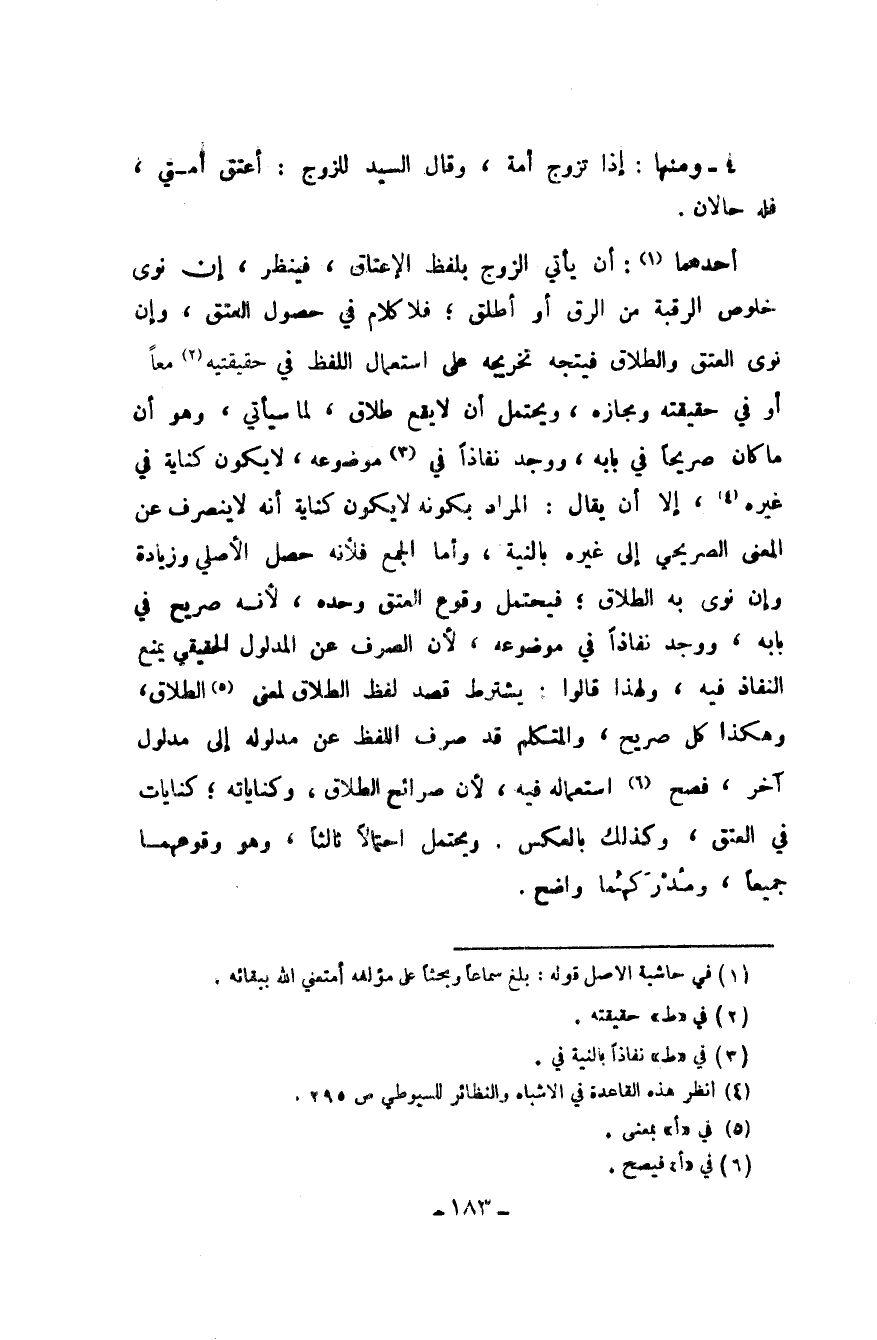 ٤ - ومنها : إذا تزوج أمة ، وقال السيد للزوج : أعتق أمـتي ،
فله حالان .
أحدهما (١) : أن يأتي الزوج بلفظ الإعتاق ، فينظر ، إن نوى
خلوص الرقبة من الرق أو أطلق ؛ فلا كلام في حصول العتق ، وإن
نوى العتق والطلاق فيتجه تخريجه على استعمال اللفظ في حقيقتيه (٢) معاً
أو في حقيقته ومجازه ، ويحتمل أن لايقع طلاق ، لما سيأتي ، وهو أن
ماكان صريحاً في بابه ، ووجد نفاذاً في (٣) موضوعه ، لايكون كناية في
غيره (٤) ، إلا أن يقال : المراد بكونه لايكون كناية أنه لاينصرف عن
المعنى الصريحي إلى غيره بالنية ، وأما الجمع فلأنه حصل الأصلي وزيادة
وإن نوى به الطلاق ؛ فيحتمل وقوع العتق وحده ، لأنـه صريح في
بابه ، ووجد نفاذاً في موضوعه ، لأن الصرف عن المدلول الحقيقي يمنع
النفاذ فيه ، ولهذا قالوا : يشترط قصد لفظ الطلاق لمعنى (٥) الطلاق،
وهكذا كل صريح ، والمتكلم قد صرف اللفظ عن مدلوله إلى مدلول
آخر ، فصح (٦) استعماله فيه ، لأن صرائح الطلاق ، وكناياته ؛ كنايات
في العتق ، وكذلك بالعكس . ويحتمل احتمالاً ثالثاً ، وهو وقوعهمـا
جميعاً ، ومُدْرَكهُما واضح .
(١) في حاشية الاصل قوله : بلغ سماعاً وبحثاً على مؤلفه أمتعني الله ببقائه .
(٢) في «ط» حقيقته .
(٣) في «ط» نفاذاً بالنية في .
(٤) انظر هذه القاعدة في الاشباه والنظائر للسيوطي ص ٢٩٥ .
(٥) في «أ» بمعنى .
(٦) في «أ» فيصح .
- ١٨٣ -